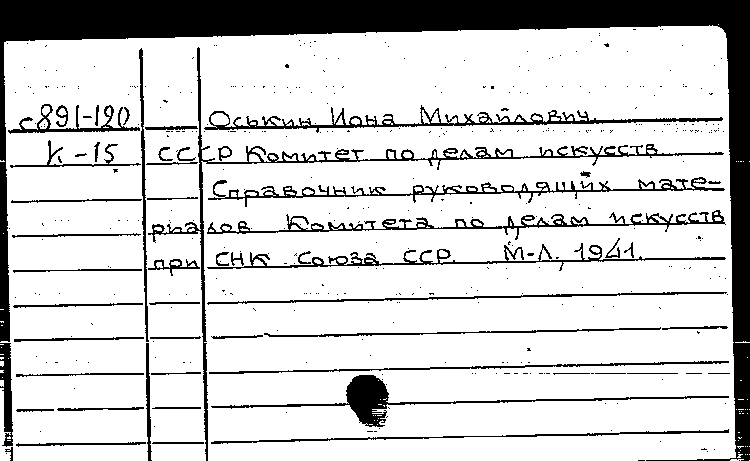 с891-120 Оськин, Иона Михайлович.
К-15 СССР Комитет по делам искусств
Справочник руководящих мате-
риалов Комитета по делам искусств
при СНК Союза ССР. М-Л, 1941.